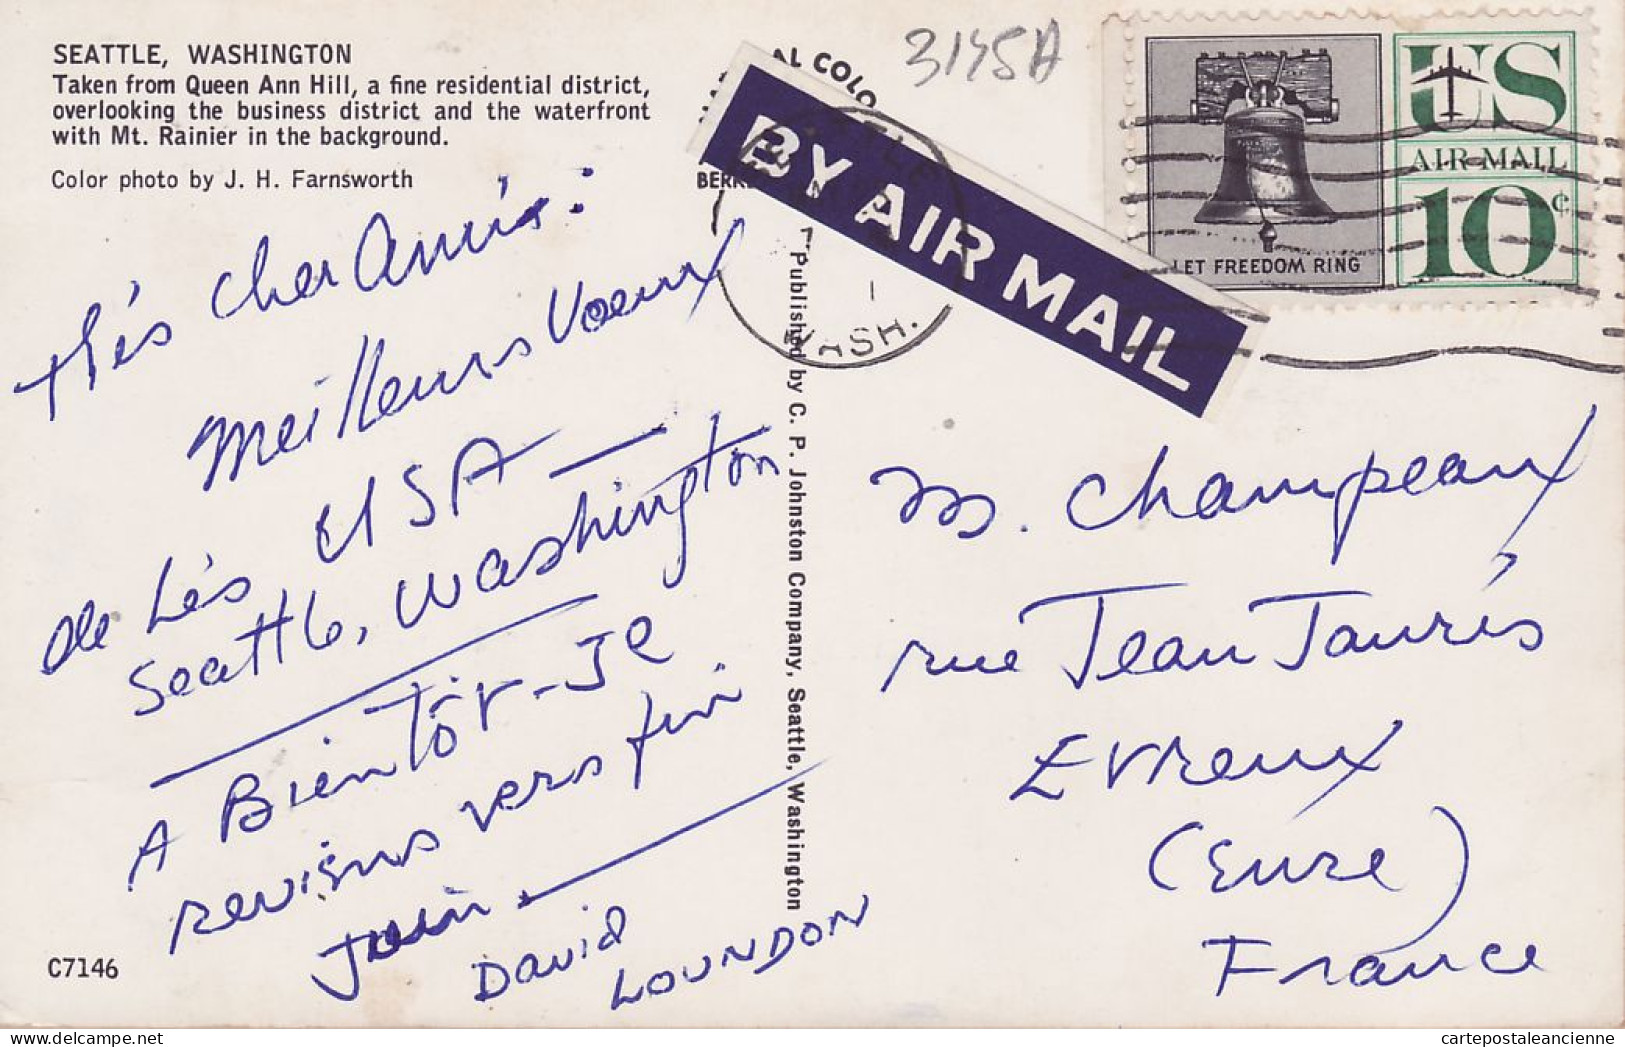 SEATTLE, WASHINGTON
Taken from Queen Ann Hill, a fine residential district,
overlooking the business district and the waterfront
with Mt. Rainier in the background.
Color photo by J. H. Farnsworth
très cher Amis:
Meilleurs Voeux
de Lés USA —
Seattle, Washington
A Bientôt - Je
reviens vers fin
Juin.
David
LOUNDON
C7146
Published by C. P. Johnston Company, Seattle, Washington
AL COLO
BERK
3145A
BY AIR MAIL
WASH.
LET FREEDOM RING
US
AIR MAIL
10¢
M. Champeaux
rue Jean Jaurés
Evreux
(Eure)
France
cartepostaleancienne